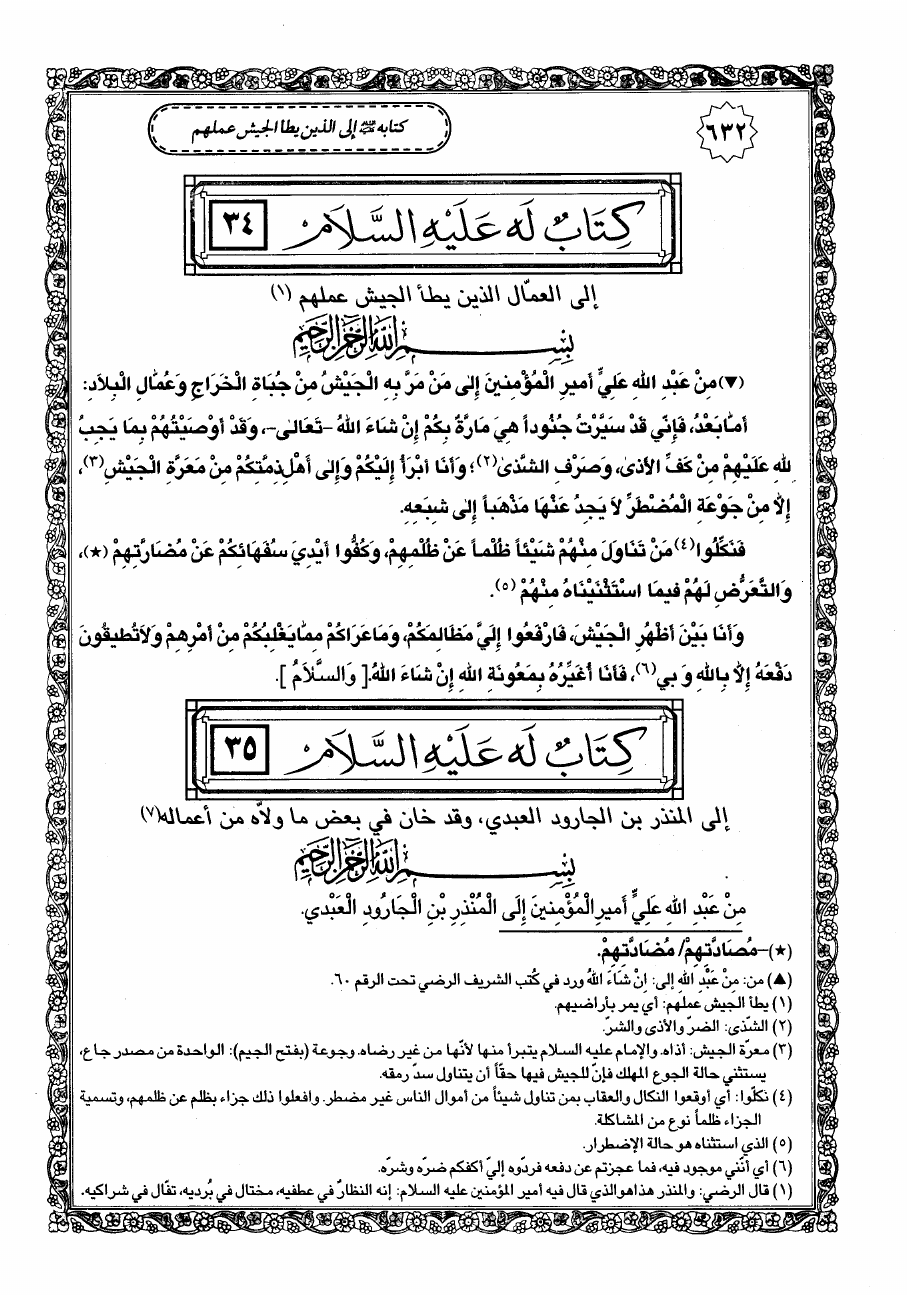 ٦٣٢
كتابه عليه السلام إلى الذين يطا الجيش عملهم
كِتَابٌ لَه عَلَيْهِ السَّلَام
٣٤
إلى العمّال الذين يطأ الجيش عملهم (١)
بِسْمِ اللهِ الرَّحْمٰنِ الرَّحِيمِ
(▼)مِنْ عَبْدِ اللهِ عَلِيٍّ أَميرِ الْمُؤْمِنينَ إِلى مَنْ مَرَّ بِهِ الْجَيْشُ مِنْ جُبَاةِ الْخَرَاجِ وَعُمّالِ الْبِلاَدِ:
أَمّابَعْدُ، فَإِنّي قَدْ سَيَّرْتُ جُنُوداً هِيَ مَارَّةٌ بِكُمْ إِنْ شَاءَ اللهُ -تَعَالى-، وَقَدْ أَوْصَيْتُهُمْ بِمَا يَجِبُ
للهِ عَلَيْهِمْ مِنْ كَفِّ الأَذى، وَصَرْفِ الشَّذى(٢)؛ وَأَنَا أَبْرَأُ إِلَيْكُمْ وَإِلى أَهْلِ ذِمَّتِكُمْ مِنْ مَعَرَّةِ الْجَيْشِ(٣)،
إِلاَّ مِنْ جَوْعَةِ الْمُضْطَرِّ لاَ يَجِدُ عَنْهَا مَذْهَباً إِلى شِبَعِهِ.
فَنَكِّلُوا(٤) مَنْ تَنَاوَلَ مِنْهُمْ شَيْئاً ظُلْماً عَنْ ظُلْمِهِمْ، وَكُفُّوا أَيْدِيَ سُفَهَائِكُمْ عَنْ مُضَارَّتِهِمْ (★)،
وَالتَّعَرُّضِ لَهُمْ فيمَا اسْتَثْنَيْنَاهُ مِنْهُمْ (٥).
وَأَنَا بَيْنَ أَظْهُرِ الْجَيْشِ، فَارْفَعُوا إِلَيَّ مَظَالِمَكُمْ، وَمَاعَرَاكُمْ مِمّايَغْلِبُكُمْ مِنْ أَمْرِهِمْ وَلاَتُطيقُونَ
دَفْعَهُ إِلاَّ بِاللهِ وَ بي(٦)، فَأَنَا أُغَيِّرُهُ بِمَعُونَةِ اللهِ إِنْ شَاءَ اللهُ.[ وَالسَّلاَمُ ].
كِتَابٌ لَه عَلَيْهِ السَّلَام
٣٥
إلى المنذر بن الجارود العبدي، وقد خان في بعض ما ولاّه من أعماله(٧)
بِسْمِ اللهِ الرَّحْمٰنِ الرَّحِيمِ
مِنْ عَبْدِ اللهِ عَلِيٍّ أَميرِالْمُؤْمِنينَ إِلَى الْمُنْذِرِ بْنِ الْجَارُودِ الْعَبْدي.
(★)-مُصَادَّتِهِمْ/ مُضَادَّتِهِمْ.
(▲) من: مِنْ عَبْدِ اللهِ إلى: إِنْ شَاءَ اللهُ ورد في كُتب الشريف الرضي تحت الرقم ٦٠.
(١) يطأ الجيش عملهم: أي يمر بأراضيهم.
(٢) الشّذى: الضرّ والأذى والشرّ.
(٣) معرّة الجيش: أذاه. والإمام عليه السلام يتبرأ منها لأنّها من غير رضاه. وجوعة (بفتح الجيم): الواحدة من مصدر جاع،
يستثني حالة الجوع المهلك فإنّ للجيش فيها حقّاً أن يتناول سدّ رمقه.
(٤) نكلّوا: أي أوقعوا النكال والعقاب بمن تناول شيئاً من أموال الناس غير مضطر. وافعلوا ذلك جزاء بظلم عن ظلمهم، وتسمية
الجزاء ظلماً نوع من المشاكلة.
(٥) الذي استثناه هو حالة الإضطرار.
(٦) أي أنّني موجود فيه، فما عجزتم عن دفعه فردّوه إليّ أكفكم ضرّه وشرّه.
(١) قال الرضي: والمنذر هذاهوالذي قال فيه أمير المؤمنين عليه السلام: إنه النظارٌ في عطفيه، مختال في بُرديه، تفّال في شراكيه.